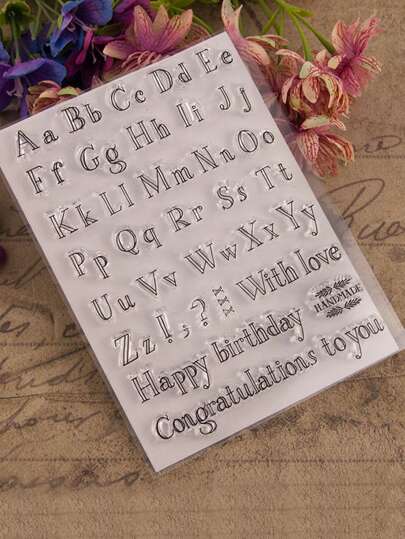 Aa Bb Cc Dd Ee
Ff Gg Hh Ii Jj
Kk Ll Mm Nn Oo
Pp Qq Rr Ss Tt
Uu Vv Ww Xx Yy
Zz ! , ? With love
HANDMADE
Happy birthday
Congratulations to you